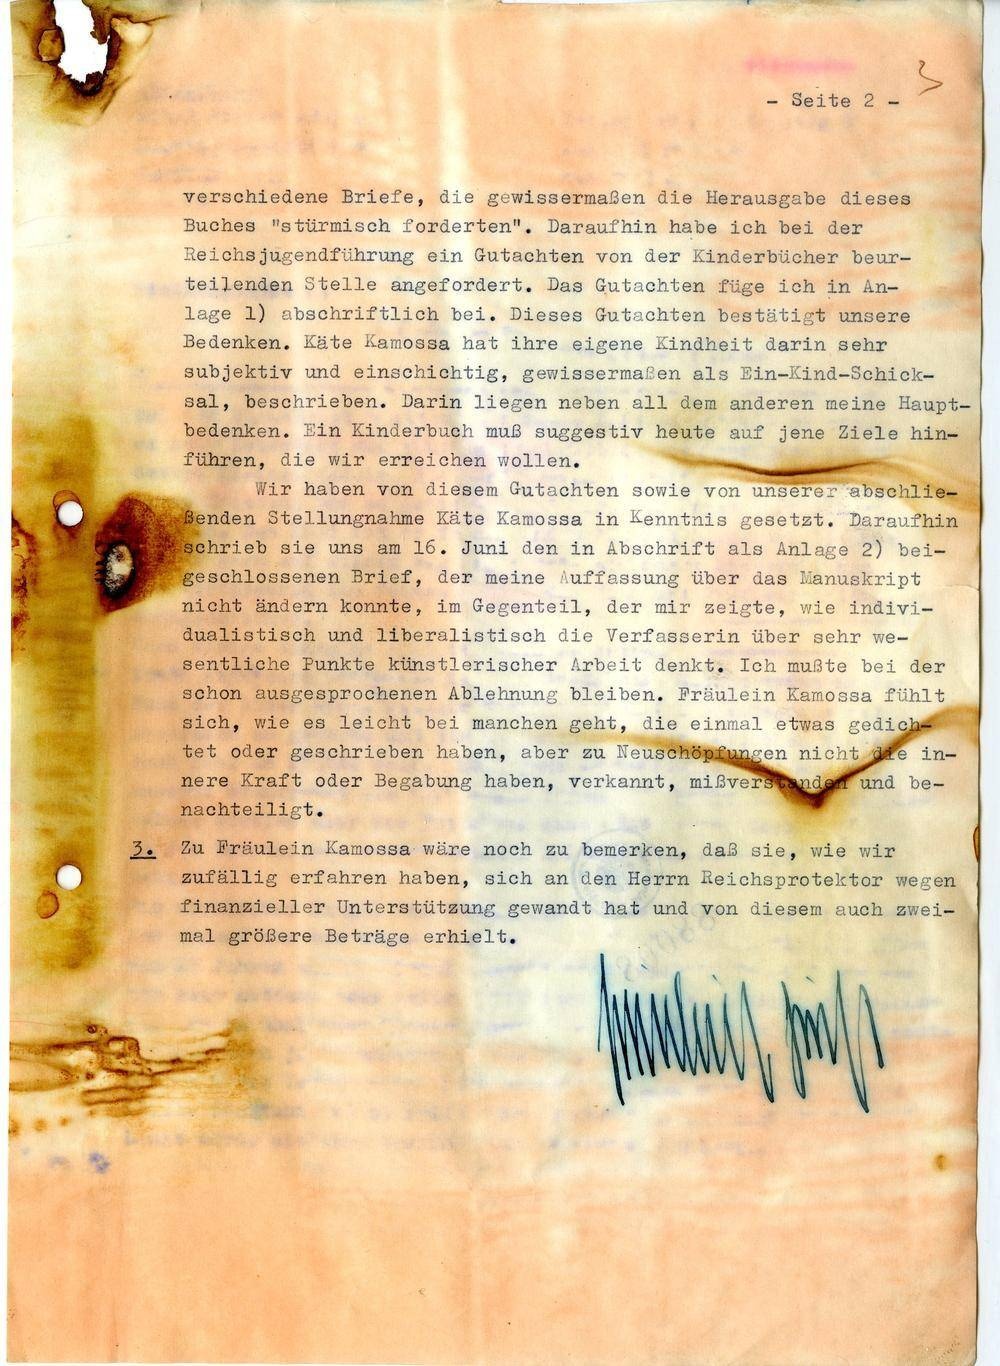 3
- Seite 2 -
verschiedene Briefe, die gewissermaßen die Herausgabe dieses
Buches "stürmisch forderten". Daraufhin habe ich bei der
Reichsjugendführung ein Gutachten von der Kinderbücher beur-
teilenden Stelle angefordert. Das Gutachten füge ich in An-
lage 1) abschriftlich bei. Dieses Gutachten bestätigt unsere
Bedenken. Käte Kamossa hat ihre eigene Kindheit darin sehr
subjektiv und einschichtig, gewissermaßen als Ein-Kind-Schick-
sal, beschrieben. Darin liegen neben all dem anderen meine Haupt-
bedenken. Ein Kinderbuch muß suggestiv heute auf jene Ziele hin-
führen, die wir erreichen wollen.
Wir haben von diesem Gutachten sowie von unserer abschlie-
ßenden Stellungnahme Käte Kamossa in Kenntnis gesetzt. Daraufhin
schrieb sie uns am 16. Juni den in Abschrift als Anlage 2) bei-
geschlossenen Brief, der meine Auffassung über das Manuskript
nicht ändern konnte, im Gegenteil, der mir zeigte, wie indivi-
dualistisch und liberalistisch die Verfasserin über sehr we-
sentliche Punkte künstlerischer Arbeit denkt. Ich mußte bei der
schon ausgesprochenen Ablehnung bleiben. Fräulein Kamossa fühlt
sich, wie es leicht bei manchen geht, die einmal etwas gedich-
tet oder geschrieben haben, aber zu Neuschöpfungen nicht die in-
nere Kraft oder Begabung haben, verkannt, mißverstanden und be-
nachteiligt.
3. Zu Fräulein Kamossa wäre noch zu bemerken, daß sie, wie wir
zufällig erfahren haben, sich an den Herrn Reichsprotektor wegen
finanzieller Unterstützung gewandt hat und von diesem auch zwei-
mal größere Beträge erhielt.